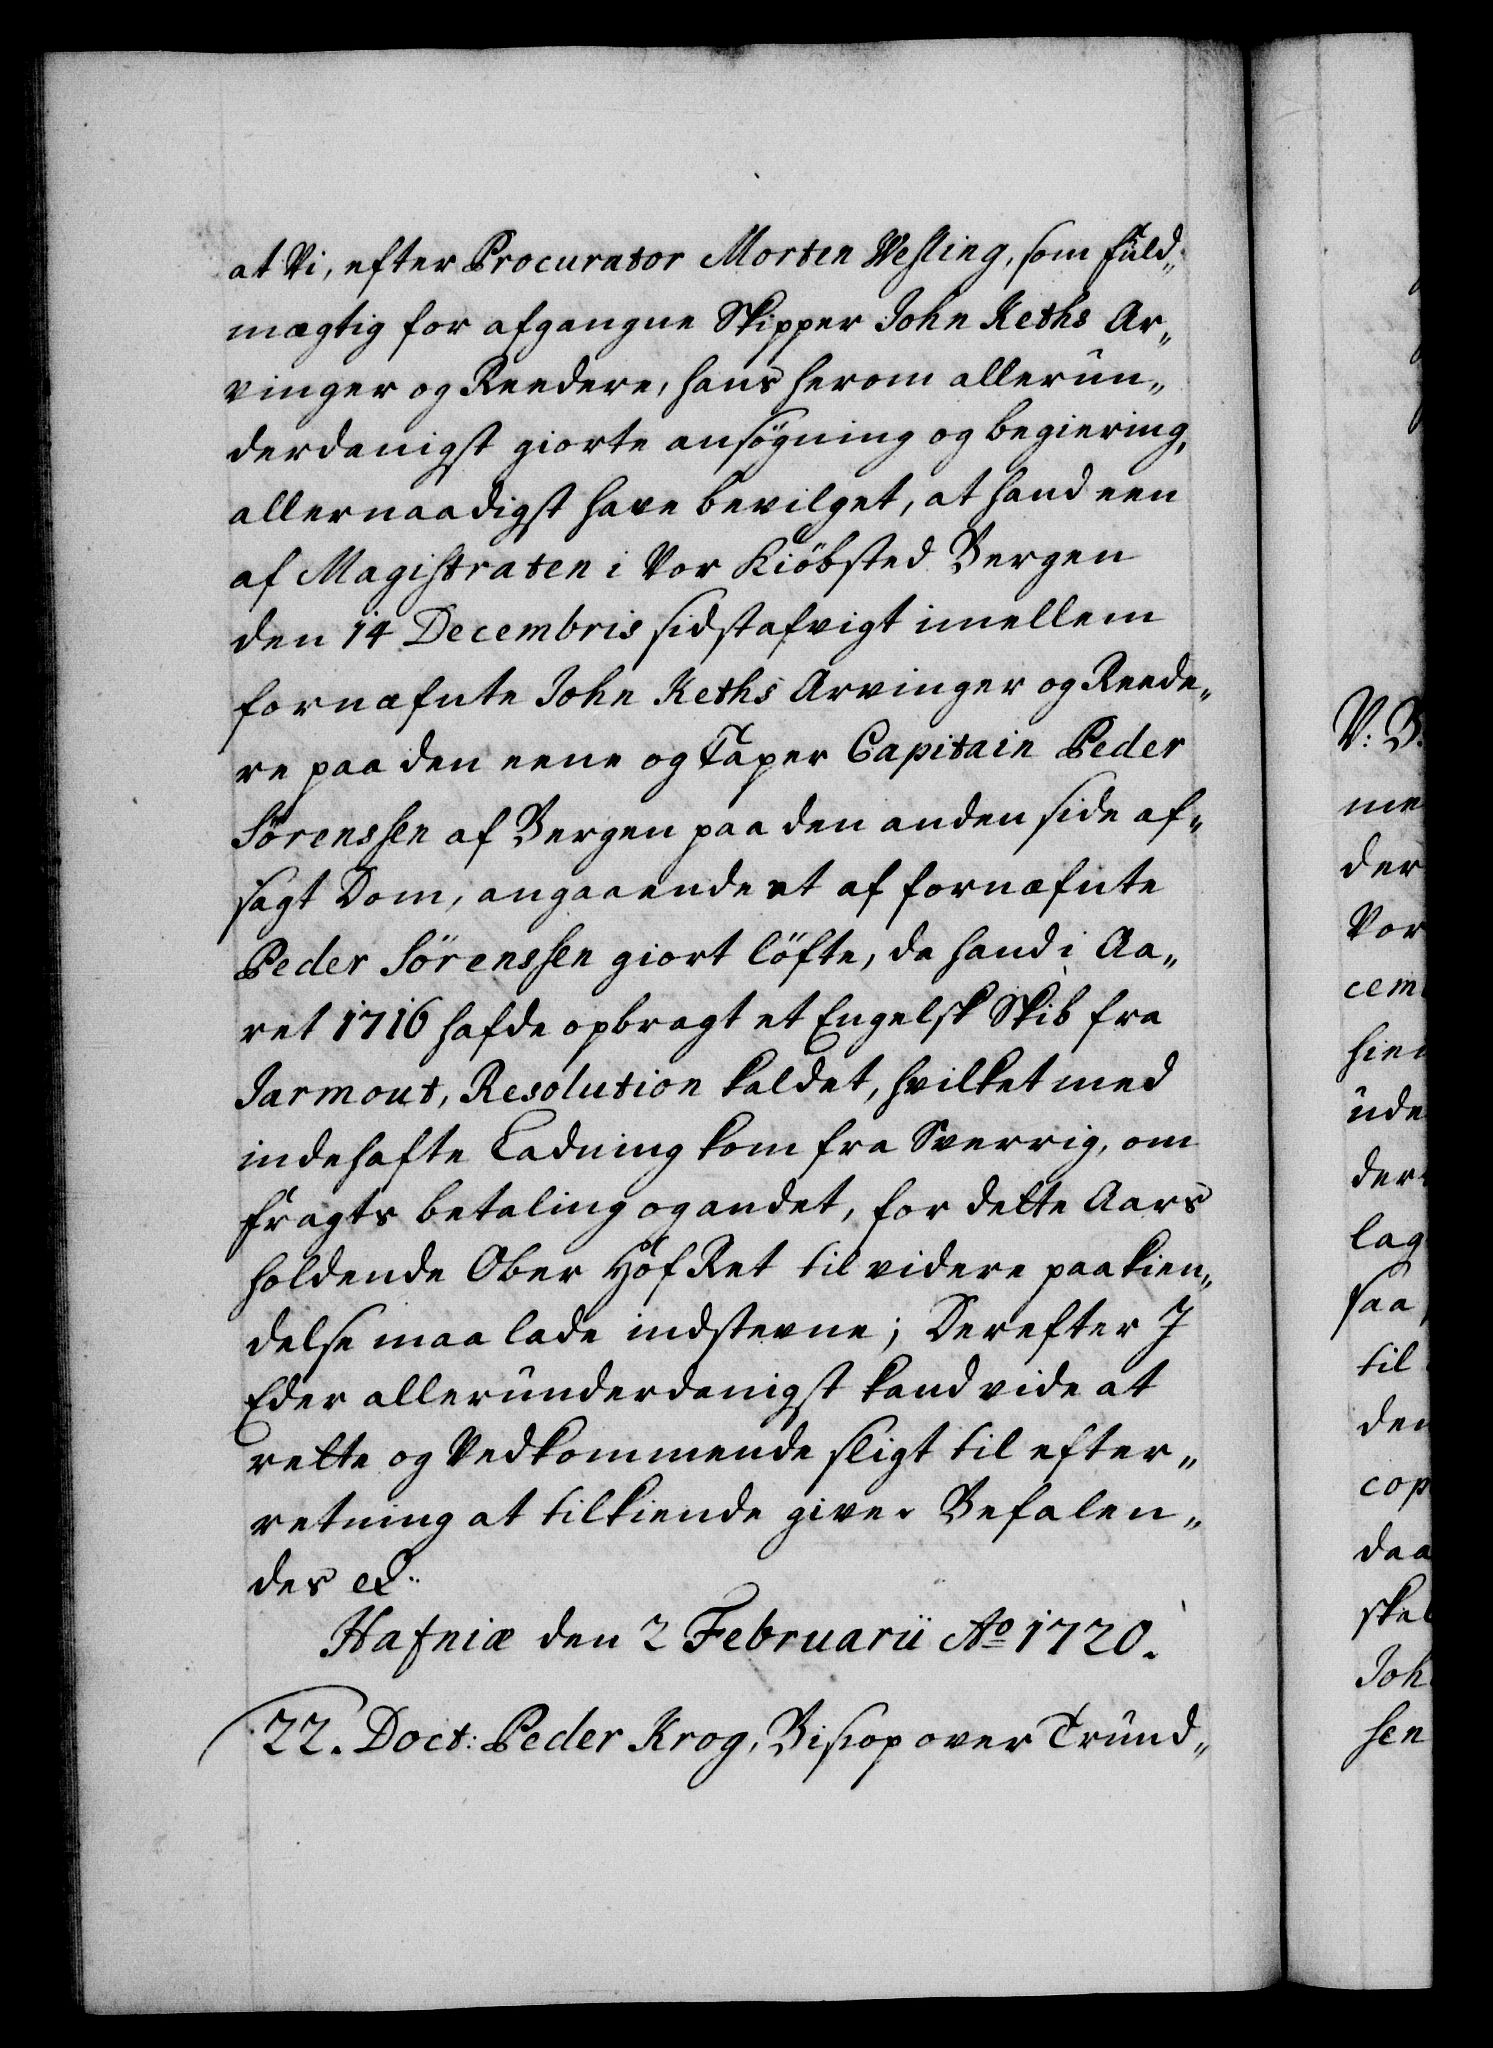 at Vi, efter Procurator Morten Wesling, som fuld„
mægtig for afgangne Skipper John Keths Ar„
vinger og Reedere, hans herom allerun„
derdanigst giorte ansøgning og begiering,
allernaadigst have bevilget, at hand een
af Magistraten i Vor Kiöbsted Bergen
den 14 Decembris sidstafvigt imellem
fornæfnte John Keths Arvinger og Reede„
re paa den eene og Caper Capitain Peder
Sörenssen af Bergen paa den anden side af„
sagt Dom, angaaende et af fornæfnte
Peder Sörenssen giort löfte, da hand i Aa„
ret 1716 hafde opbragt et Engelsk Skib fra
Jarmout, Resolution kaldet, hvilket med
indehafte Ladning kom fra Sverrig, om
fragts betaling og andet, for dette Aars
holdende Ober Hof Ret til videre paakien„
delse maa lade indstevne; Derefter I
Eder allerunderdanigst kand vide at
rette og Vedkommende sligt til efter„
retning at tilkiende give. Befalen„
des etc.
Hafniæ den 2 Februarii Ao 1720.
22. Doct: Peder Krog, Biskop over Trund„
V: B.
me
der
Vor
cem
hien
ude
der
lag
saa
til
den
cop
daa
skel
Joh
sen